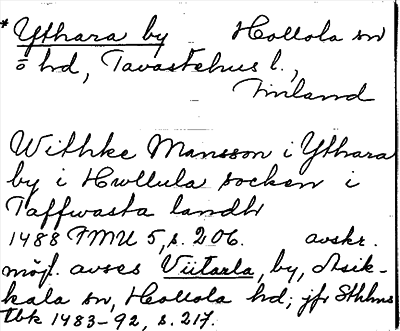 *Ythara by Hollola sn
ō hd, Tavastehus l.,
Finland
Withke Mansson i Ythara
by i Hwllula socken i
Taffwasta landh
1488 FMU 5, s. 206. avskr.
möjl. avses Viitarla, by, Asik-
kala sn, Hollola hd; jfr Sthlms
tbk 1483-92, s. 217.